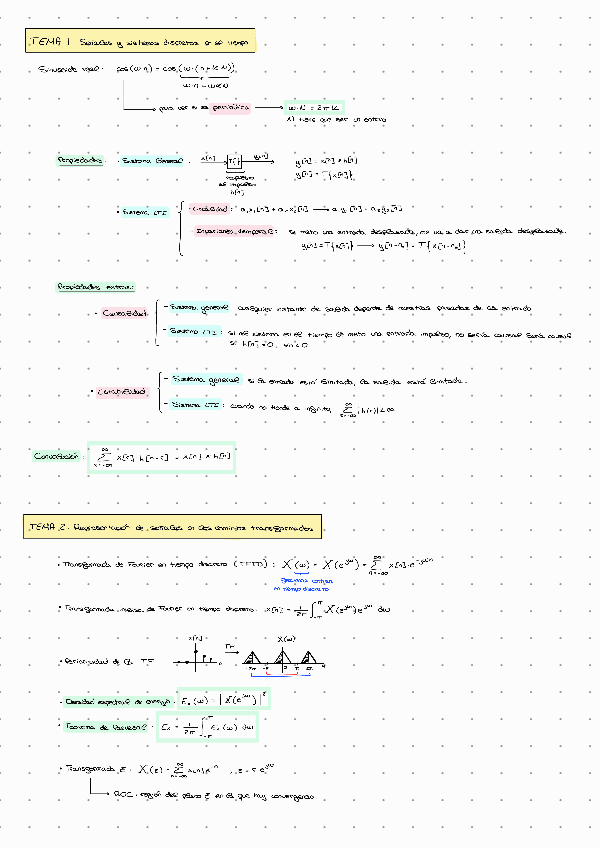 TEMA 1 Señales y sistemas discretos en el tiempo
Sinusoide real: cos(ω·n) = cos(ω·(n+kN))
para ver si es periódica → ω·N = 2πk
N tiene que ser un entero
Propiedades: · Sistema General: x[n] → T{·} → y[n] y[n] = x[n] * h[n]
respuesta al impulso h[n] y[n] = T{x[n]}
· Sistema LTI - Linealidad:
- Invarianza temporal: si meto una entrada desplazada, me va a dar una salida desplazada.
y[n] = T{x[n]} → y[n-n₀] = T{x[n-n₀]}
Propiedades extras:
· Causalidad - Sistema general: cualquier instante de salida depende de muestras pasadas de la entrada
- Sistema LTI: si el sistema en el tiempo le meto una entrada impulso, no será causal
si h[n] = 0, ∀n<0
· Estabilidad - Sistema general: si la entrada está limitada, la salida está limitada.
- Sistema LTI: cuando no tiende a infinito, ∑ |h[n]| < ∞
Convolución: ∑ x[k] · h[n-k] = x[n] * h[n]
TEMA 2: Representación de señales en los dominios transformados
· Transformada de Fourier en tiempo discreto (TFTD): X(ω) = X(e^jω) = ∑ x[n]·e^-jωn
en tiempo discreto
· Transformada inversa de Fourier en tiempo discreto: x[n] = 1/2π ∫ X(e^jω) e^jωn dω
· Periodicidad de la TF x[n] TF X(ω)
· Densidad espectral de energía: Eₓ(ω) = |X(e^jω)|²
· Teorema de Parseval: Eₓ = 1/2π ∫ Eₓ(ω) dω
· Transformada Z: X(z) = ∑ x[n] z^-n, z = r e^jω
ROC: región del plano z en la que hay convergencia